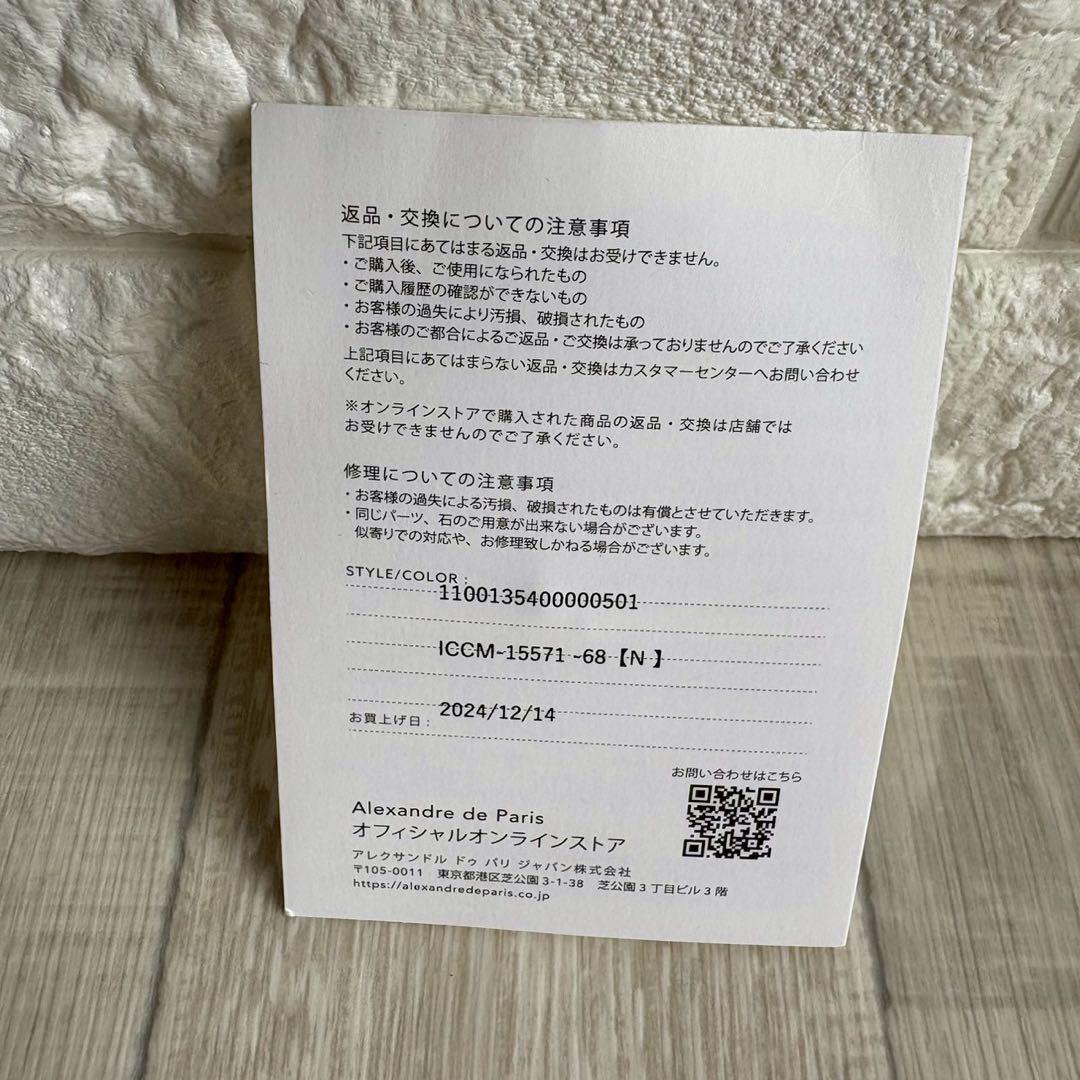 返品・交換についての注意事項
下記項目にあてはまる返品・交換はお受けできません。
・ご購入後、ご使用になられたもの
・ご購入履歴の確認ができないもの
・お客様の過失により汚損、破損されたもの
・お客様のご都合によるご返品・ご交換は承っておりませんのでご了承ください
上記項目にあてはまらない返品・交換はカスタマーセンターへお問い合わせ
ください。
※オンラインストアで購入された商品の返品・交換は店舗では
お受けできませんのでご了承ください。
修理についての注意事項
・お客様の過失による汚損、破損されたものは有償とさせていただきます。
・同じパーツ、石のご用意が出来ない場合がございます。
似寄りでの対応や、お修理致しかねる場合がございます。
STYLE/COLOR :
1100135400000501
ICCM-15571 -68【N 】
お買上げ日 : 2024/12/14
お問い合わせはこちら
Alexandre de Paris
オフィシャルオンラインストア
アレクサンドル ドゥ パリ ジャパン株式会社
〒105-0011 東京都港区芝公園3-1-38 芝公園3丁目ビル3階
https://alexandredeparis.co.jp